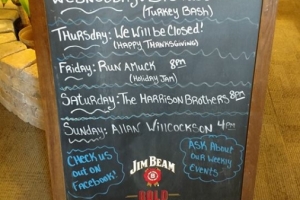 (Turkey Bash)
Thursday: We Will be Closed!
(Happy Thanksgiving)
Friday: Run Amuck 8pm
(Holiday Jam)
Saturday: The Harrison Brothers 8pm
Sunday: Allan Willcockson 4pm
Check us
out on
Facebook!
JIM BEAM
ASK About
our weekly
events!